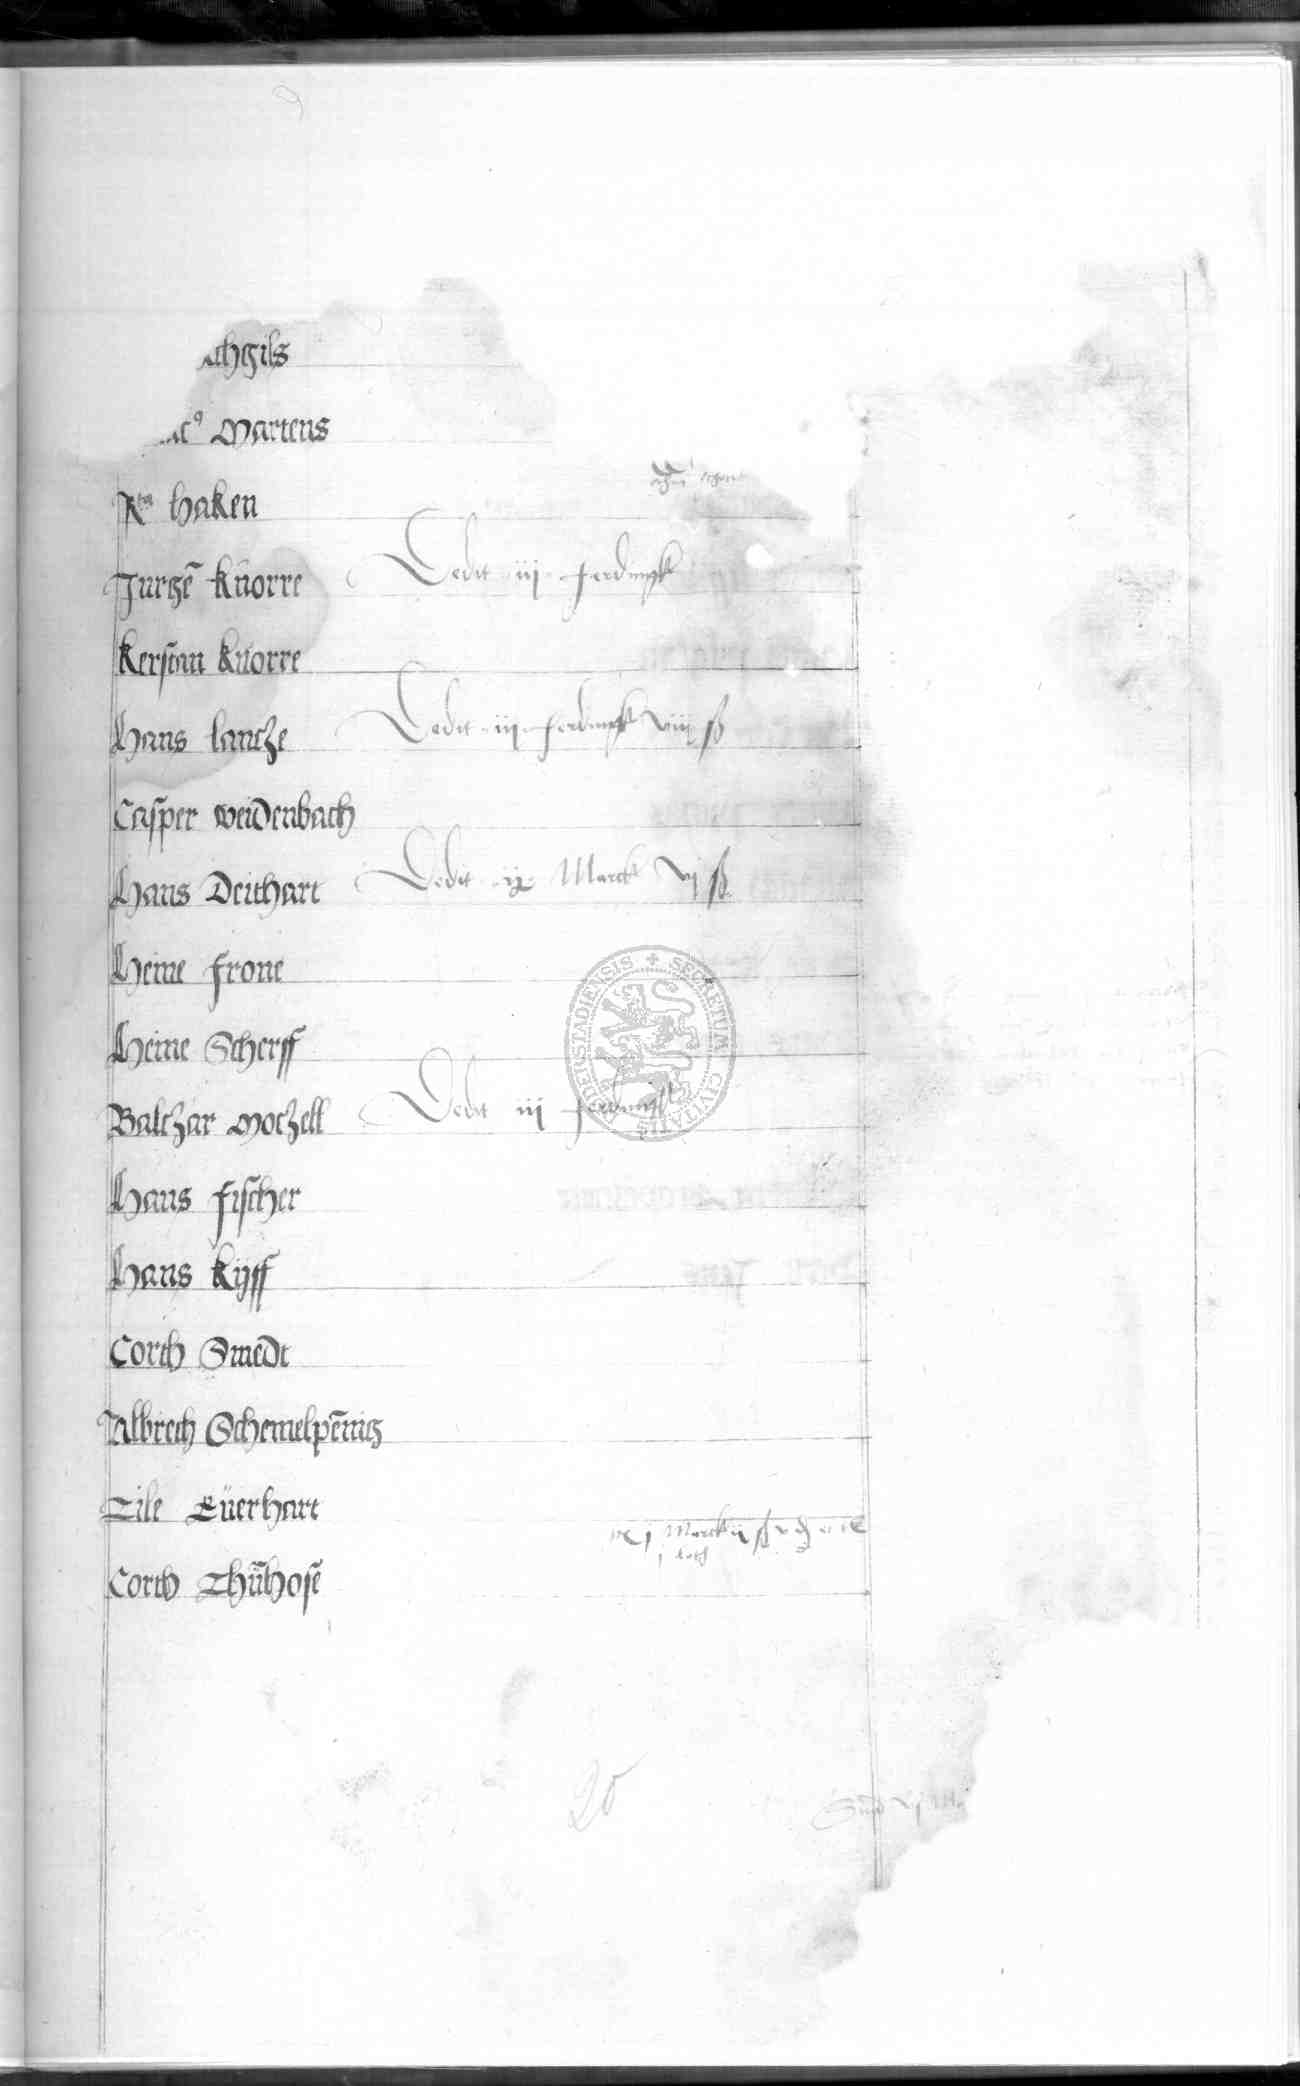 chgils
Martens
Rta Haken
Jurgē Knorre Dedit iij ferdingk
Kerstan Knorre
Hans lancze Dedit iij ferdingk viij ß
Casper Weidenbach
Hans Deithart Dedit Marck vj ß
Heine Frone
Heine Scherff
Balczar Moczell Dedit iij ferdingk
Hans Fischer
Hans Kyff
Corth Smedt
Albrech Schemelpēnig
Tile Eüerhart
Marck ß
j loth
Corth Thūhosē
20
SECRETUM CIVITATIS DUDERSTADIENSIS